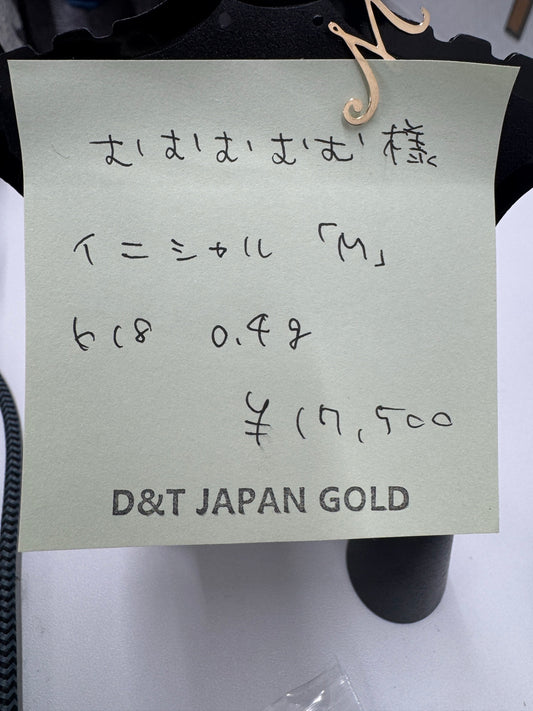 むむむむむ様
イニシャル「M」
k18 0.4g
¥17,500
D&T JAPAN GOLD